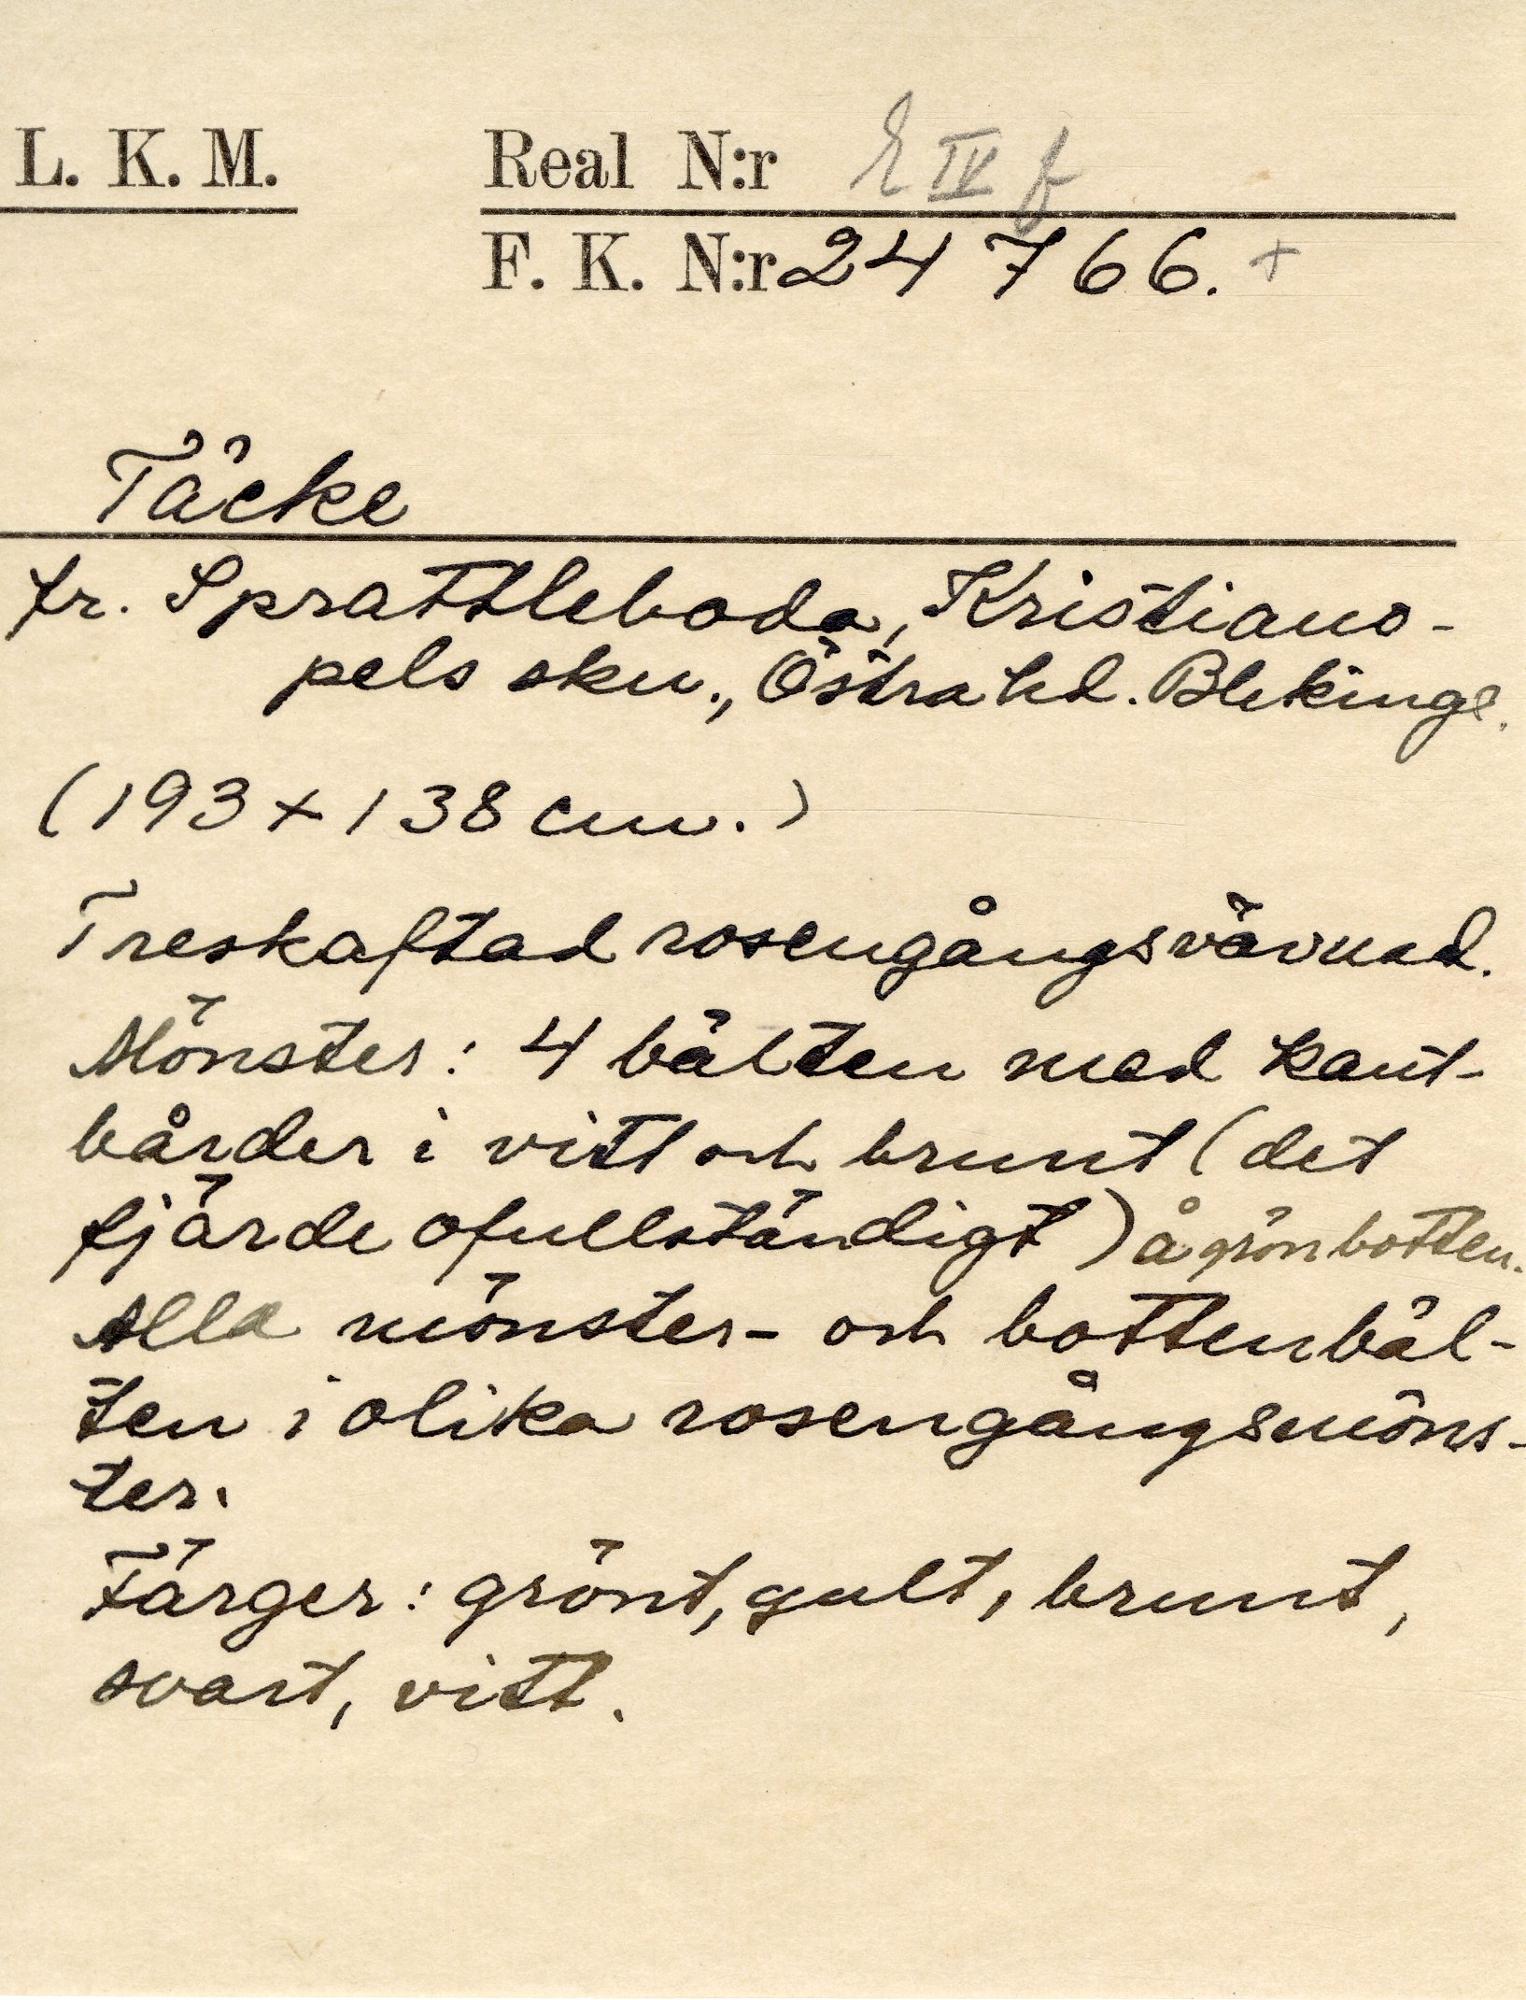 L. K. M. Real N:r E IV f
F. K. N:r 24 766. +
Täcke
fr. Sprattleboda, Kristiano-
pels skn., Östra hd. Blekinge.
(193 x 138 cm.)
Treskaftad rosengångsvävnad.
Mönster: 4 bälten med kant-
bårder i vitt och brunt (det
fjärde ofullständigt) å grön botten.
Alla mönster- och bottenbäl-
ten i olika rosengångsmöns-
ter.
Färger: grönt, gult, brunt,
svart, vitt.